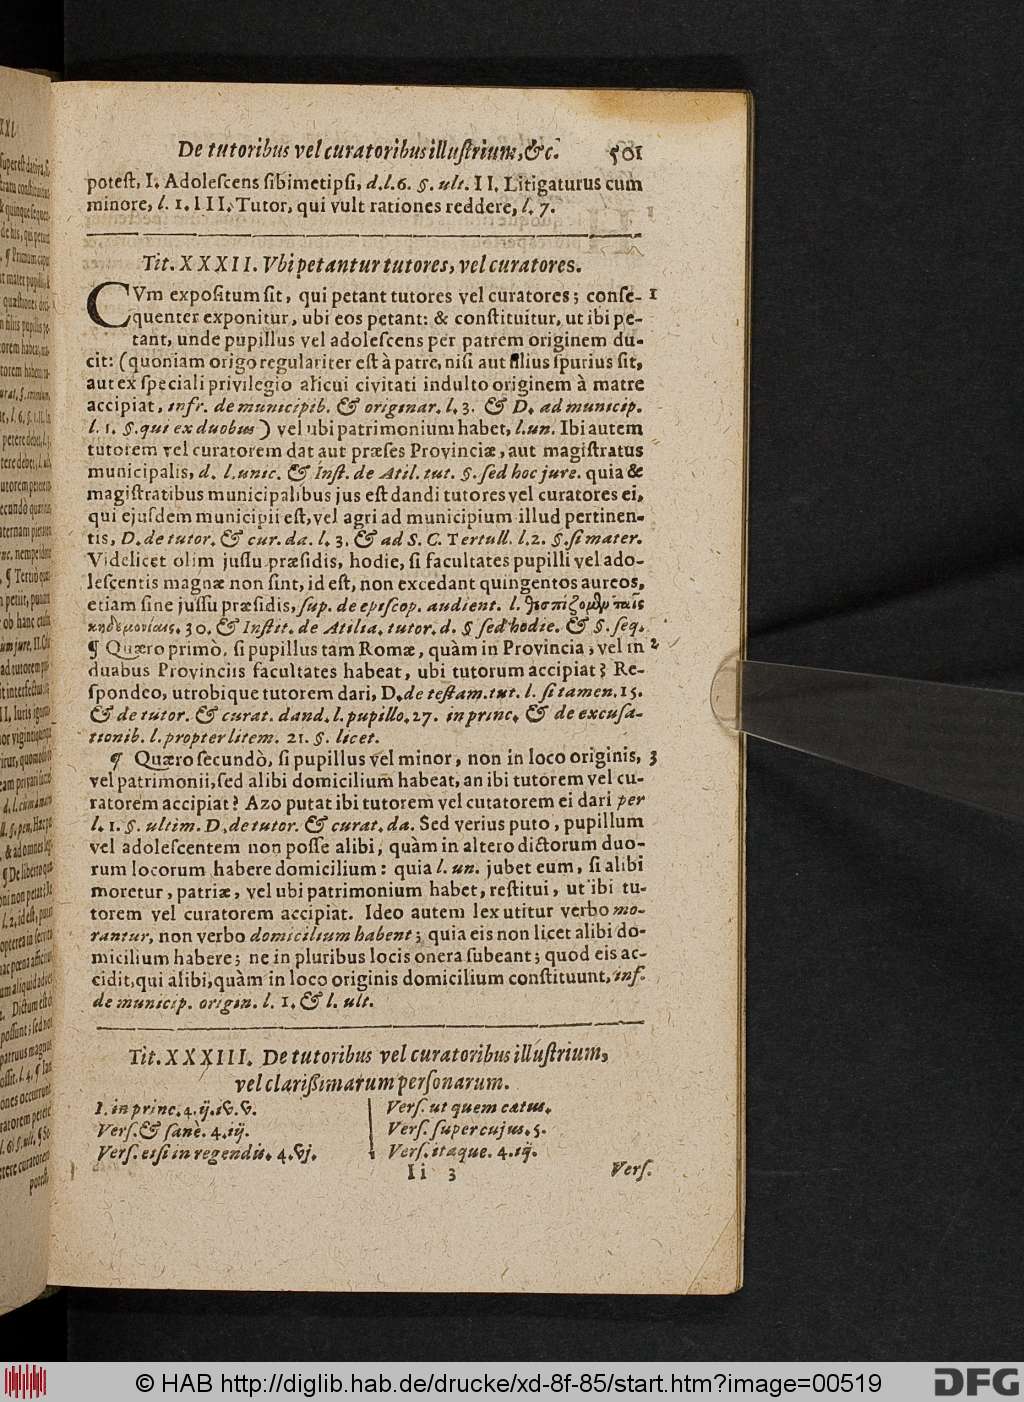 De tutoribus vel curatoribus illustrium, &c. 501
potest, I. Adolescens sibimetipsi, d.l.6. §. ult. II. Litigaturus cum
minore, l. 1. III. Tutor, qui vult rationes reddere, l. 7.
Tit. XXXII. Vbi petantur tutores, vel curatores.
CVm expositum sit, qui petant tutores vel curatores; conse- 1
quenter exponitur, ubi eos petant: & constituitur, ut ibi pe-
tant, unde pupillus vel adolescens per patrem originem du-
cit: (quoniam origo regulariter est à patre, nisi aut filius spurius sit,
aut ex speciali privilegio alicui civitati indulto originem à matre
accipiat, infr. de municipib. & originar. l. 3. & D. ad municip.
l. 1. §. qui ex duobus) vel ubi patrimonium habet, l. un. Ibi autem
tutorem vel curatorem dat aut præses Provinciæ, aut magistratus
municipalis, d. l. unic. & Inst. de Atil. tut. §. sed hoc jure. quia &
magistratibus municipalibus jus est dandi tutores vel curatores ei,
qui ejusdem municipii est, vel agri ad municipium illud pertinen-
tis, D. de tutor. & cur. da. l. 3. & ad S. C. Tertull. l. 2. §. si mater.
Videlicet olim jussu præsidis, hodie, si facultates pupilli vel ado-
lescentis magnæ non sint, id est, non excedant quingentos aureos,
etiam sine jussu præsidis, sup. de episcop. audient. l.
30. & Instit. de Atilia. tutor. d. § sed hodie. & §. seq.
¶ Quæro primò, si pupillus tam Romæ, quàm in Provincia, vel in 2
duabus Provinciis facultates habeat, ubi tutorum accipiat? Re-
spondeo, utrobique tutorem dari, D. de testam. tut. l. si tamen. 15.
& de tutor. & curat. dand. l. pupillo. 27. in princ. & de excusa-
tionib. l. propter litem. 21. §. licet.
¶ Quæro secundò, si pupillus vel minor, non in loco originis, 3
vel patrimonii, sed alibi domicilium habeat, an ibi tutorem vel cu-
ratorem accipiat? Azo putat ibi tutorem vel cutatorem ei dari per
l. 1. §. ultim. D. de tutor. & curat. da. Sed verius puto, pupillum
vel adolescentem non posse alibi, quàm in altero dictorum duo-
rum locorum habere domicilium: quia l. un. jubet eum, si alibi
moretur, patriæ, vel ubi patrimonium habet, restitui, ut ibi tu-
torem vel curatorem accipiat. Ideo autem lex utitur verbo mo-
rantur, non verbo domicilium habent; quia eis non licet alibi do-
micilium habere; ne in pluribus locis onera subeant; quod eis ac-
cidit, qui alibi, quàm in loco originis domicilium constituunt, inf.
de municip. origin. l. 1. & l. ult.
Tit. XXXIII. De tutoribus vel curatoribus illustrium,
vel clarißimarum personarum.
I. in princ. 4. ij. iv. v.
Vers. & sanè. 4. iij.
Vers. etsi in regendis. 4. vj.
Vers. ut quem catus.
Vers. super cujus. 5.
Vers. itaque. 4. iij.
Ii 3 Vers.
© HAB http://diglib.hab.de/drucke/xd-8f-85/start.htm?image=00519
DFG